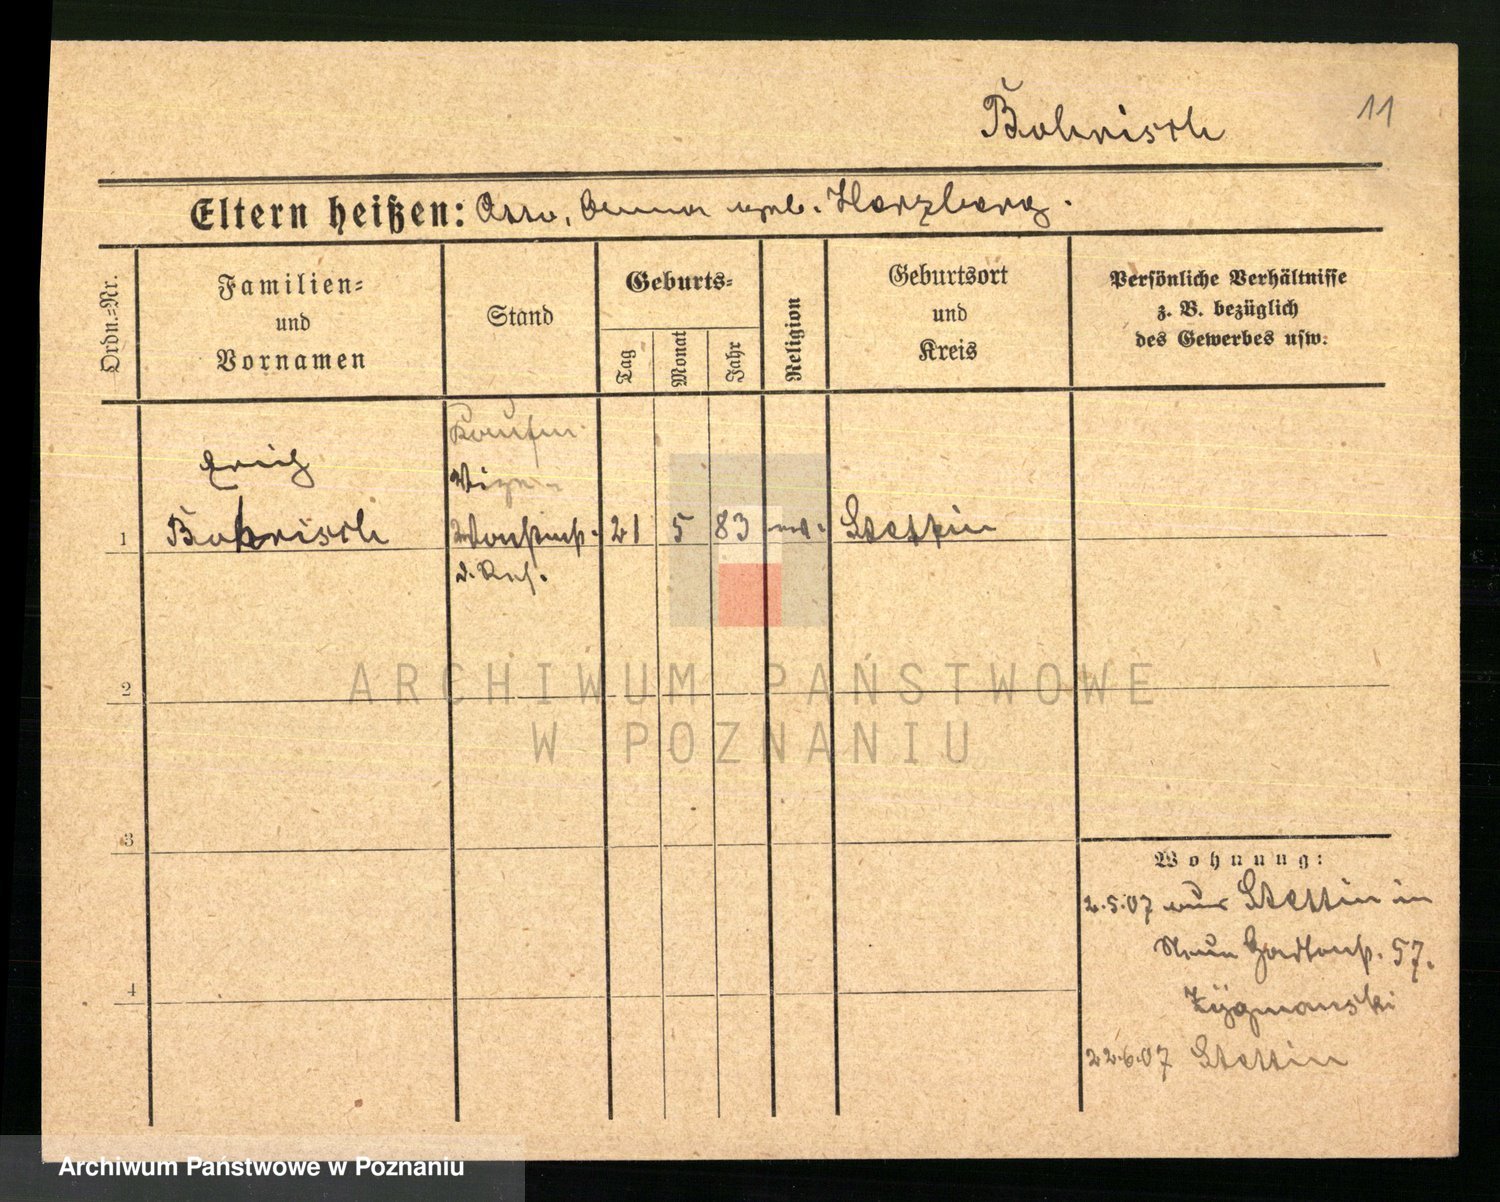 Bohrisch
11
Eltern heißen: Otto, Anna geb. Herzberg.
Ordn.-Nr.
Familien- und Vornamen
Stand
Geburts-
Tag
Monat
Jahr
Religion
Geburtsort und Kreis
Persönliche Verhältnisse
z. B. bezüglich
des Gewerbes usw.
Kaufm.
Erich
Vize-
1 Bohrisch Wachtmstr. 21 5 83 ev. Stettin
d. Res.
2
3
4
Wohnung:
2.5.07 aus Stettin in
Neue Gartenstr. 57.
Zygmanski
22.6.07 Stettin
ARCHIWUM PAŃSTWOWE
W POZNANIU
Archiwum Państwowe w Poznaniu